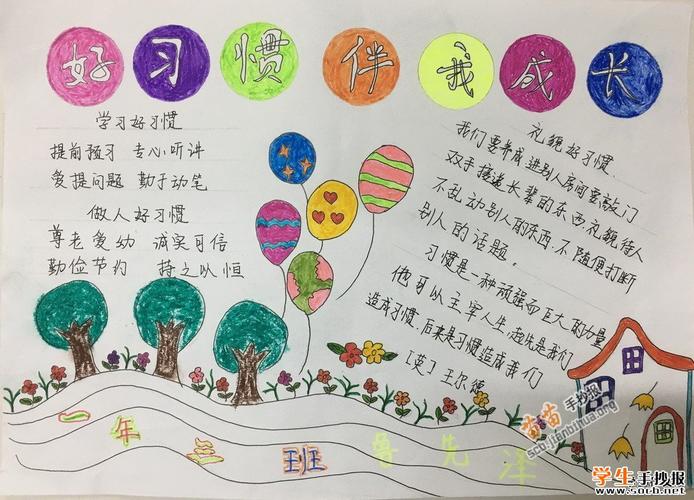 好习惯伴我成长
学习好习惯
提前预习 专心听讲
爱提问题 勤于动笔
做人好习惯
尊老爱幼 诚实可信
勤俭节约 持之以恒
礼貌好习惯
我们要养成进别人房间要敲门
双手接递长辈的东西,礼貌待人
不乱动别人的东西,不随便打断
别人的话题。
习惯是一种顽强而巨大的力量
他可以主宰人生,起先是我们
造成习惯,后来是习惯造成我们
[英] 王尔德
一年三班 鲁先泽
苗苗手抄报
sc.jianbihua.org
学生手抄报
www.soch.net